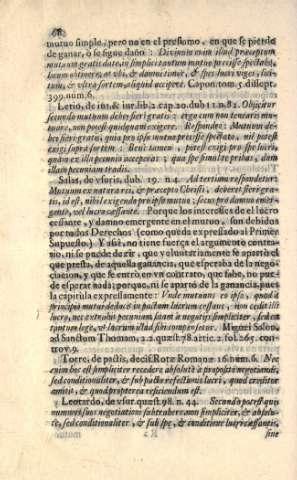 mutuo simple, pero no en el prestamo, en que se pierde
de ganar, ò se sigue daño: Divinum enim illud præceptum
mutuum gratis date, in simplici tantum mutuo præcisse spectato,
locum obtinere, at ubi, & damnu timor, & spes lucri viget, lici-
tum, & ultra sortem aliquid accipere. Capon. tom. 5. discept.
399. num. 6.
Lesio, de iust. & iur. lib. 2. cap. 20. dub. 11. n. 82. Objicitur
secundo mutuum debet fieri gratis: ergo cum non tenearis mu-
tuare, non potest quidquam exigere. Respondeo: Mutuum de-
bet fieri gratis, quia pro ipso mutuo præcisse spectato, nil potest
exigi supra sortem: Bene tamen, potest exigi pro spe lucri,
quam ex illa pecunia acceperat; qua spe simul te privas, dum
illam pecuniam tradis.
Salas, de usuris, dub. 19. n. 4. Ad tertium respondetur:
Mutuum ex natura rei, & præcepto Christi, deberet fieri gra-
tis, id est, nihil exigendo pro ipso mutuo; secus pro damno emer-
gente, vel lucro cessante. Porque los interesses de el lucro
cessante, y damno emergente en el mutuo, son debidos
por todos Derechos (como queda expressado al Primer
Supuesto.) Y assi, no tiene fuerça el argumento contra-
rio, ni se puede dezir, que voluntariamente se apartò el
que presta, de aquella ganancia, que esperaba de la nego-
ciacion, y que se entrò en un contrato, que sabe, no pue-
de esperar nada; porque, ni se apartò de la ganancia, pues
la capitula expressamente: Unde mutuans eo ipso, quod à
principio mutui deducit in pactum lucrum cessans, non cedit illi
lucro, nec extrahit pecuniam suam à negotio simpliciter, sed eā
tintum lege, ut lucrum illud sibi compensetur. Miguèl Salon,
ad Sanctum Thomam, 2. 2. quæst. 78. artic. 2. fol. 265. con-
trov. 9.
Torre, de pactis, decis. Rotæ Romanæ 16. num. 6. Nec
enim hoc est simpliciter recedere absolutè à proposito negotiandi,
sed conditionaliter, & sub pacto refectionis lucri, quod creditor
amitit, & quod propterea reficiendum est.
Leotardo, de usur. quæst. 98. n. 44. Secundo potest quis
nummos suos negotiationi subtrahere, non simpliciter, & absolu-
te, sed conditionaliter, & sub spe, & conditione lucri cessantis,
sine